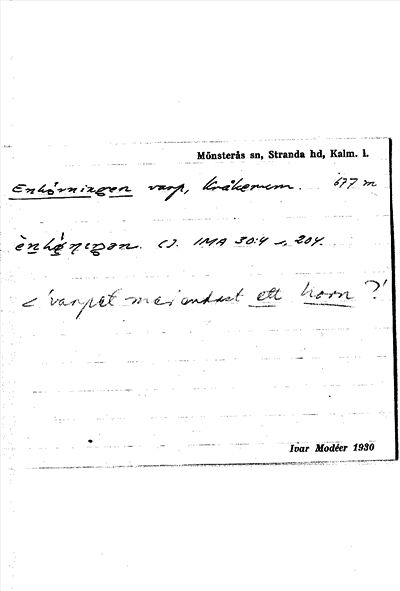 Mönsterås sn, Stranda hd, Kalm. l.
Enhörningen varp, Kråkerum. 677 m
IMA 30:4 204.
<'varpet med endast ett horn'?
Ivar Modéer 1930